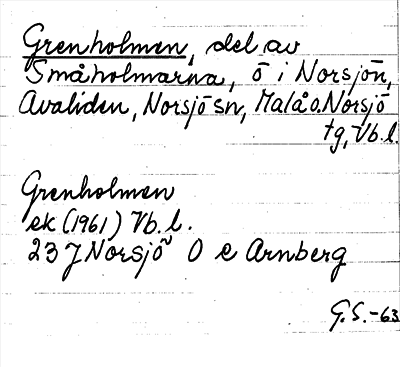 Grenholmen, del av
Småholmarna, ö i Norsjön,
Avaliden, Norsjö sn, Malå o. Norsjö
tg, Vb. l.
Grenholmen
ek (1961) Vb. l.
23 J Norsjö O e Arnberg
G.S.-63